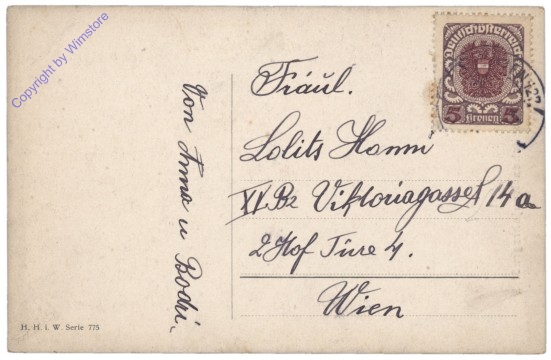 Copyright by Wimstore
Deutschösterreich
5 5
Kronen
Von Anna u
Fräul.
Lolits
XV Bz Viktoriagasse 14a
2 Hof Türe 4.
Wien
H. H. i. W. Serie 775